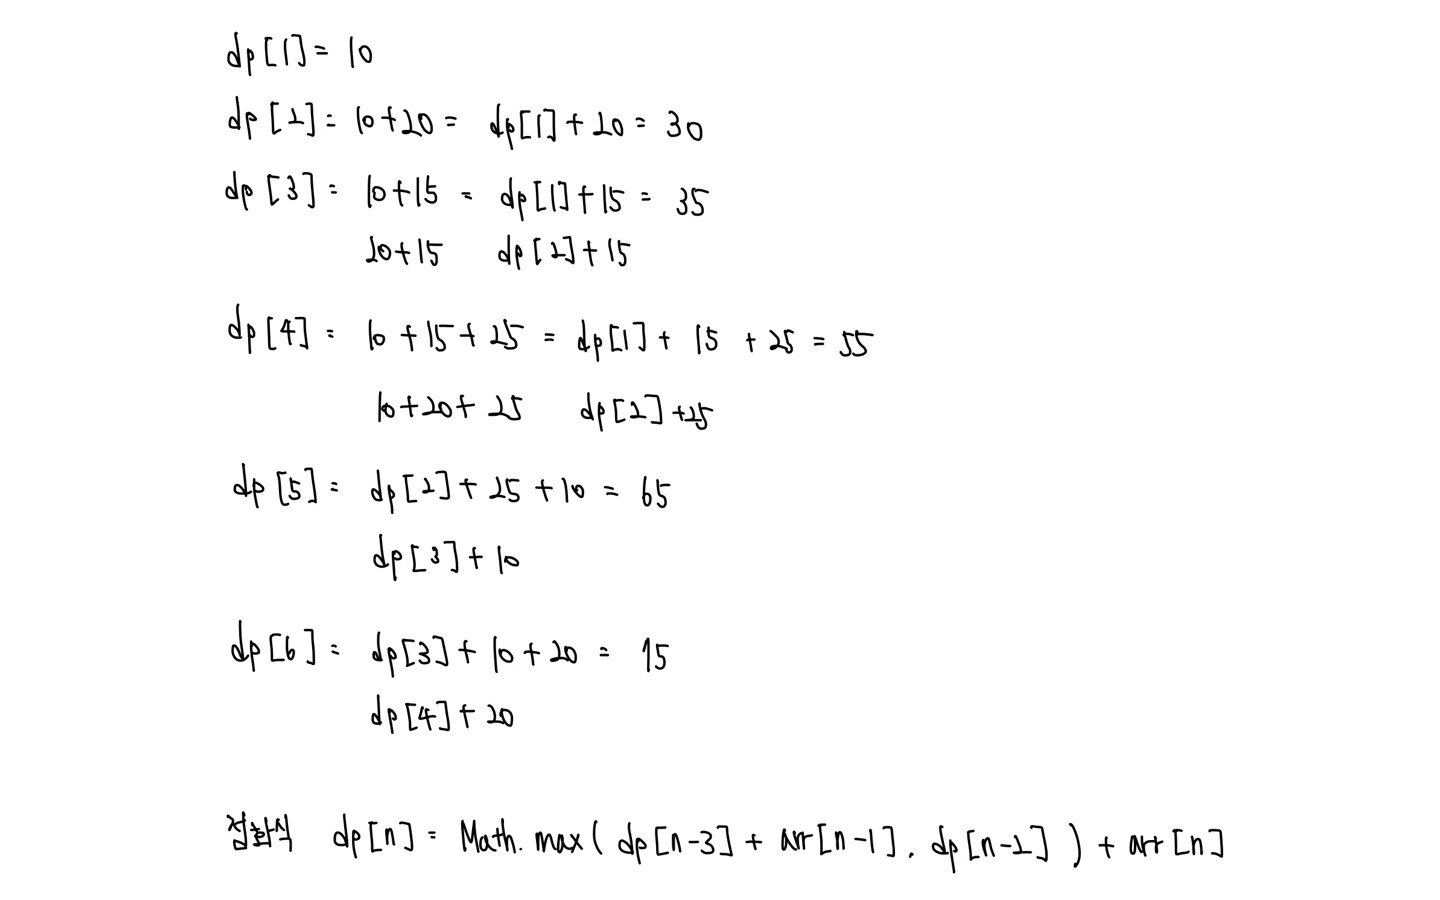 dp[1] = 10
dp[2] = 10+20 = dp[1] + 20 = 30
dp[3] = 10+15 = dp[1] + 15 = 35
20+15 dp[2] + 15
dp[4] = 10 + 15 + 25 = dp[1] + 15 + 25 = 55
10+20+ 25 dp[2] +25
dp[5] = dp[2] + 25 + 10 = 65
dp[3] + 10
dp[6] = dp[3] + 10 + 20 = 75
dp[4] + 20
점화식 dp[n] = Math. max( dp[n-3] + arr[n-1], dp[n-2] ) + arr[n]